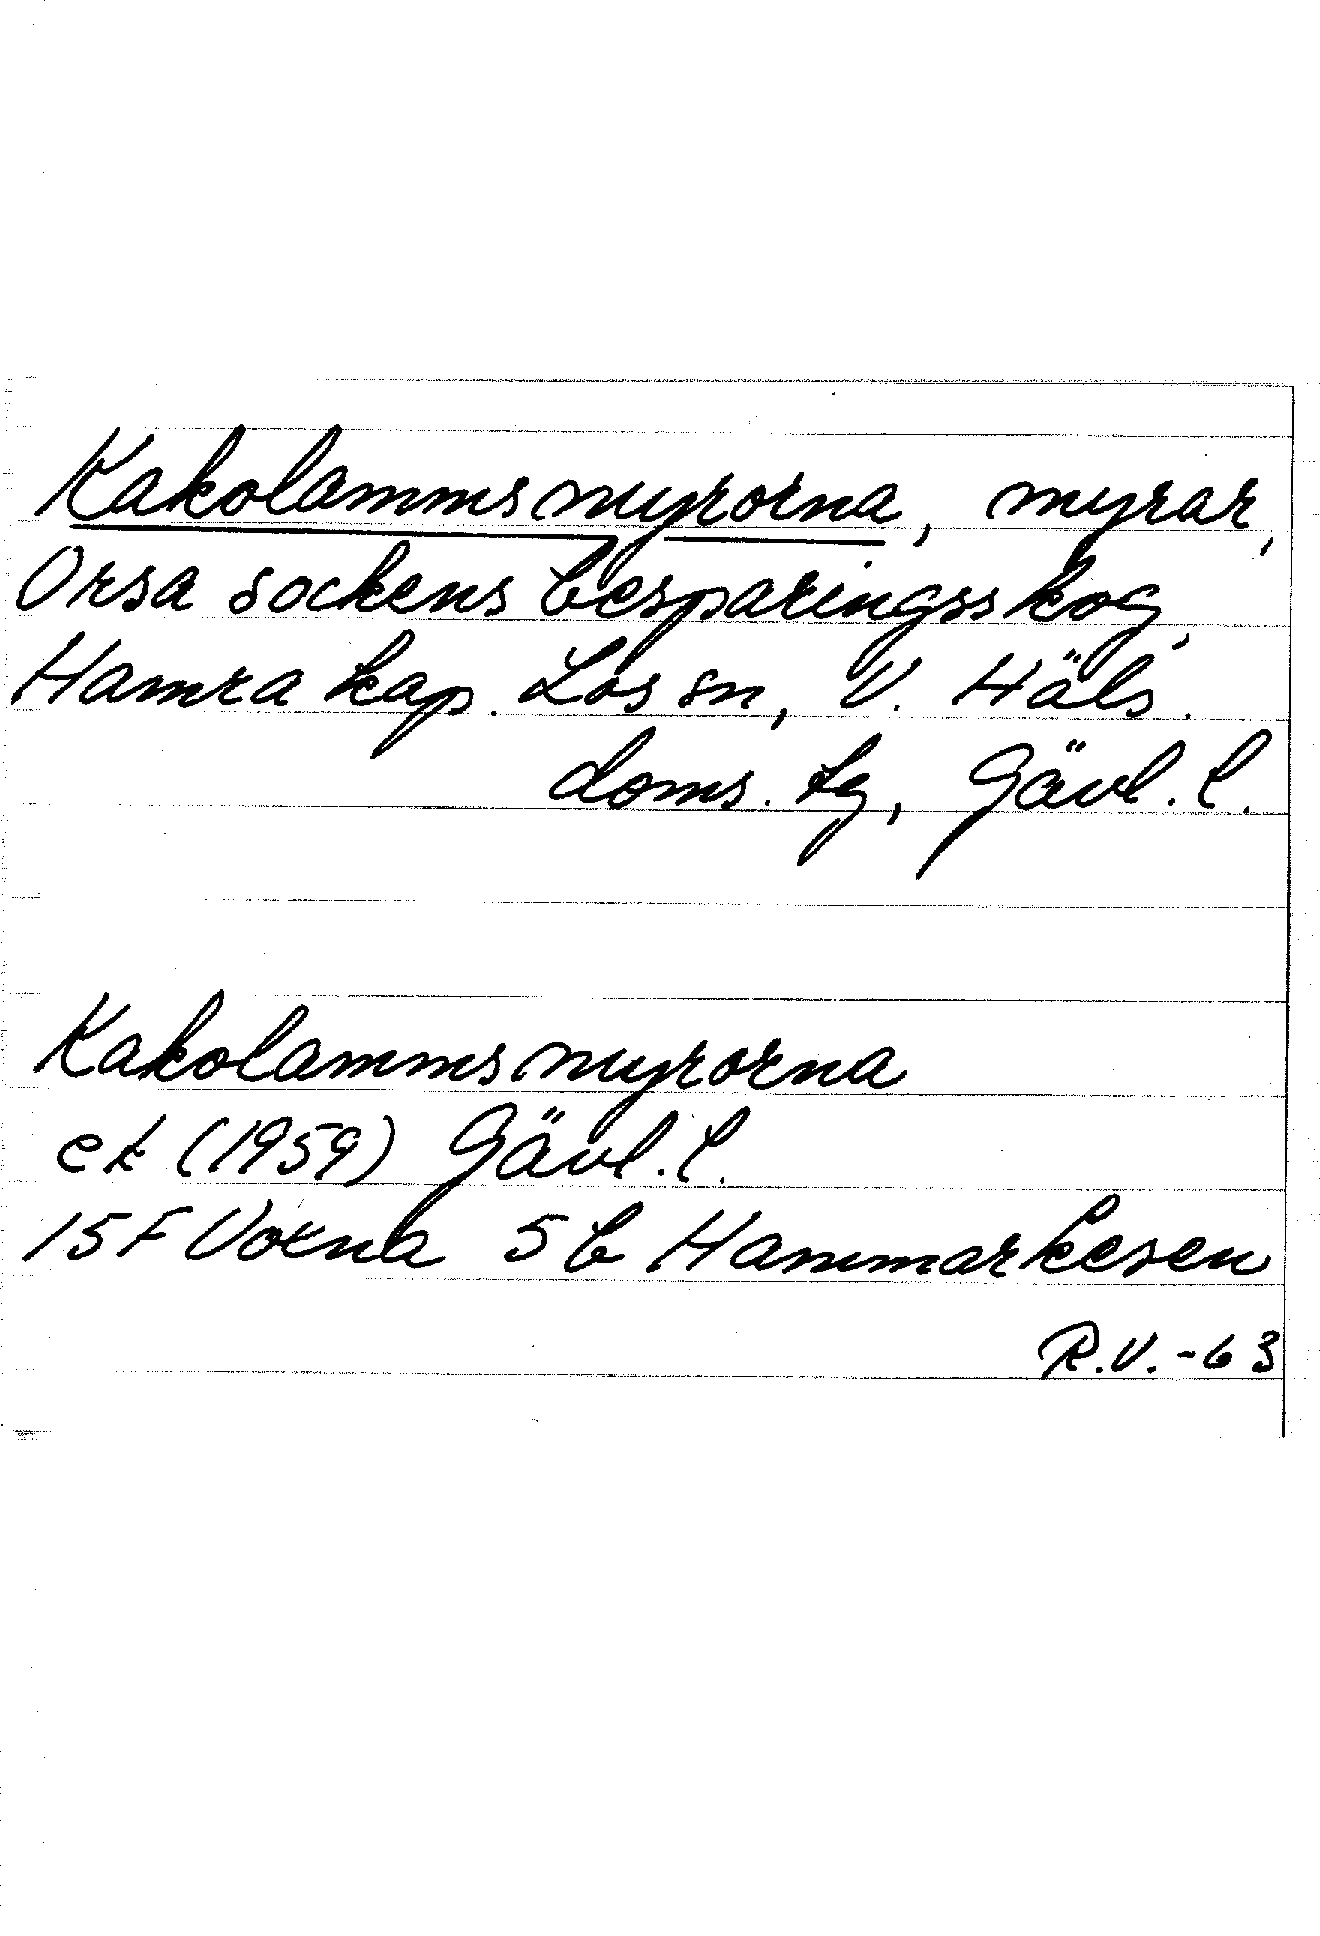 Kakolammsmyrorna, myrar,
Orsa sockens besparingsskog,
Hamra kap. Los sn, V. Häls.
doms. tg, Gävl. l.
Kakolammsmyrorna
ek (1959) Gävl. l.
15F Voxna 5b Hammarkesen
R.V. -63